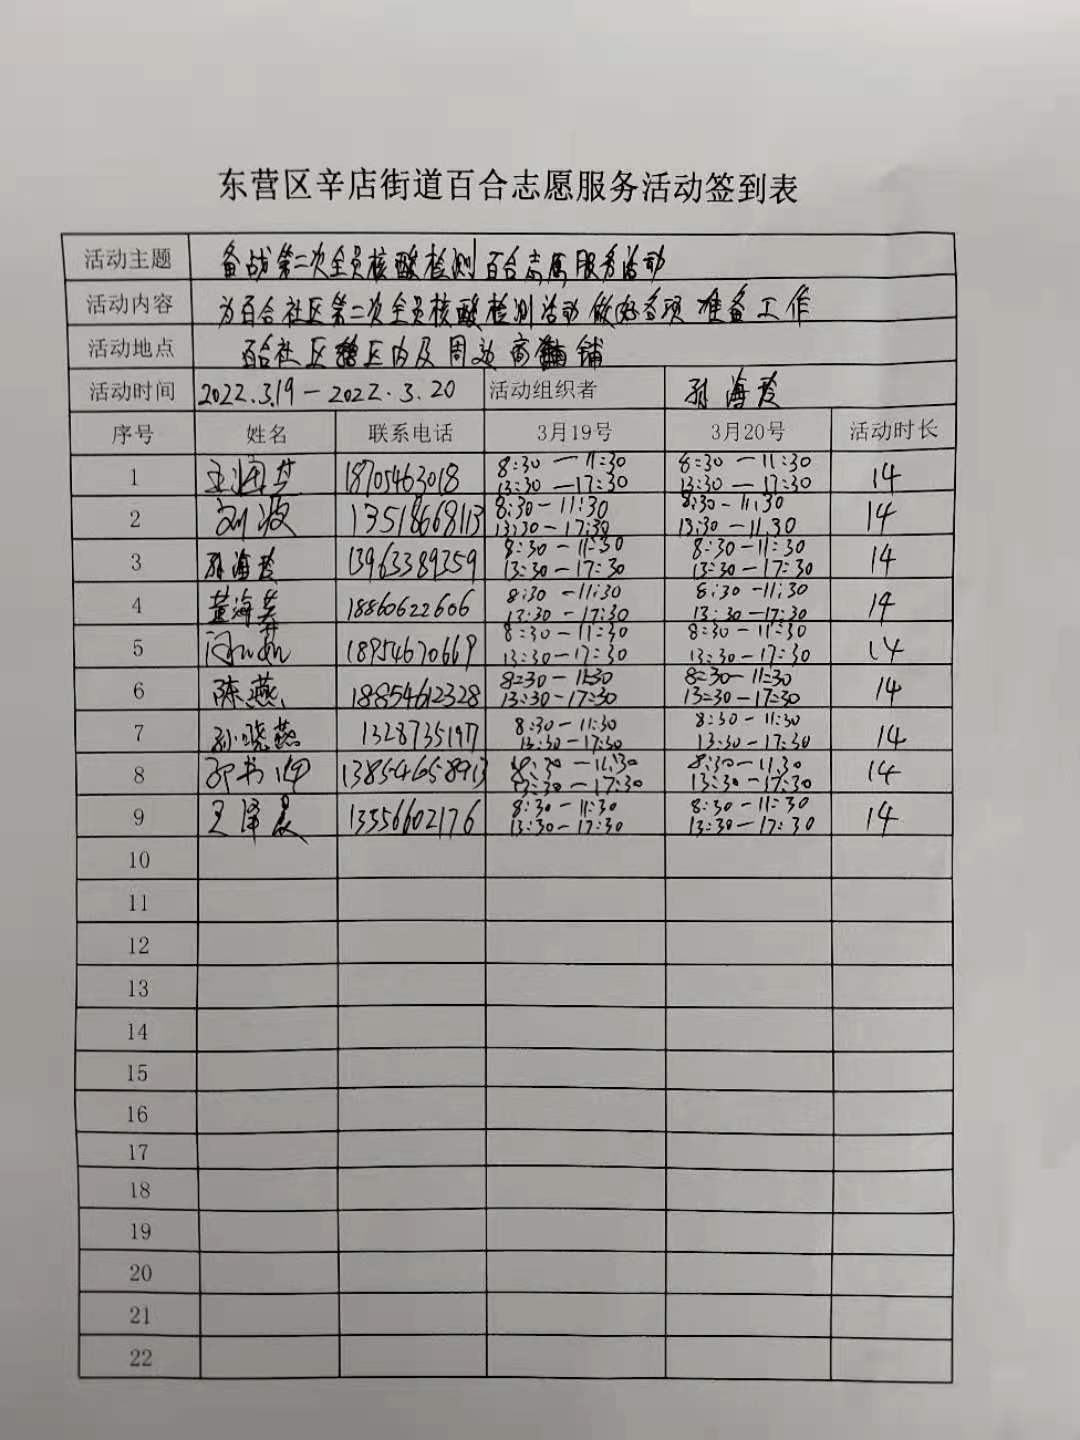 东营区辛店街道百合志愿服务活动签到表
活动主题 备战第二次全员核酸检测百合志愿服务活动
活动内容 为百合社区第二次全员核酸检测活动做好各项准备工作
活动地点 百合社区辖区内及周边商铺
活动时间 2022.3.19－2022.3.20 活动组织者 孙海霞
序号 姓名 联系电话 3月19号 3月20号 活动时长
1 18705463018 8:30－11:30 8:30－11:30 14
13:30－17:30 13:30－17:30
2 刘波 13518668113 8:30－11:30 8:30－11:30 14
13:30－17:30 13:30－11:30
3 孙海霞 13963389359 8:30－11:30 8:30－11:30 14
13:30－17:30 13:30－17:30
4 黄海燕 18860622606 8:30－11:30 8:30－11:30 14
13:30－17:30 13:30－17:30
5 18954670669 8:30－11:30 8:30－11:30 14
13:30－17:30 13:30－17:30
6 陈燕 18854612328 8:30－11:30 8:30－11:30 14
13:30－17:30 13:30－17:30
7 孙晓燕 13287351197 8:30－11:30 8:30－11:30 14
13:30－17:30 13:30－17:30
8 13854658913 8:30－11:30 8:30－11:30 14
13:30－17:30 13:30－17:30
9 王泽晨 13556602176 8:30－11:30 8:30－11:30 14
13:30－17:30 13:30－17:30
10
11
12
13
14
15
16
17
18
19
20
21
22